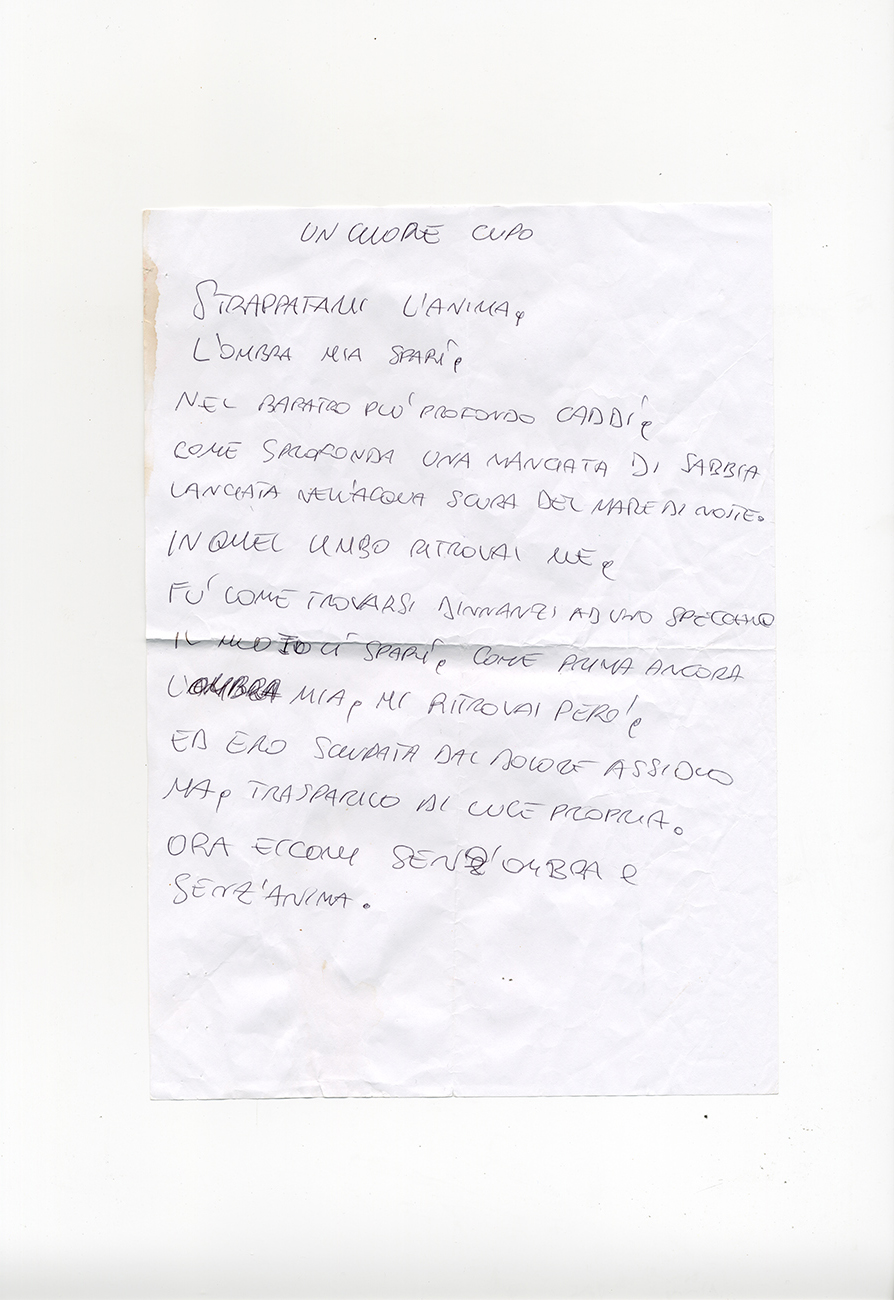 UN CUORE CUPO
STRAPPATAMI L'ANIMA,
L'OMBRA MIA SPARÌ,
NEL BARATRO PIU' PROFONDO CADDI,
COME SPROFONDA UNA MANCIATA DI SABBIA
LANCIATA NELL'ACQUA SCURA DEL MARE DI NOTTE.
IN QUEL LIMBO RITROVAI ME,
FU' COME TROVARSI DINNANZI AD UNO SPECCHIO
IL MIO LÌ SPARÌ, COME PRIMA ANCORA
L'OMBRA MIA, MI RITROVAI PERO',
ED ERO SCIUPATA DAL DOLORE ASSIDUO
MA, TRASPARIVO DI LUCE PROPRIA.
ORA ECCOMI SENZ'OMBRA E
SENZ'ANIMA.